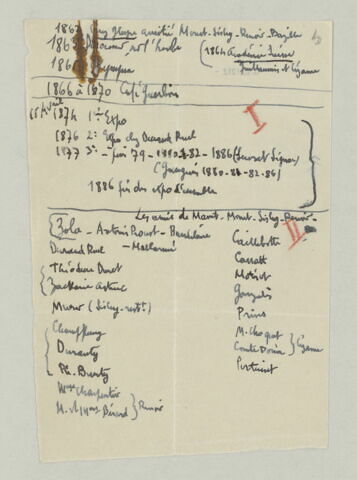 1862 groupe amitié Monet - Sisley - Renoir - Bazille
1863
1864 Académie Suisse
Guillaumin et Cézanne
186
1866 à 1870 Café Guerbois
15 Avril 1874 1ère Expo
I
1876 2e Expo chez Durand Ruel
1877 3e - 79 - 82 - 1886 (Seurat Signac)
(Gauguin 1880-81-82-86)
1886 fin des expo d'ensemble
Les amis de Manet - Monet - Sisley - Renoir -
II
Zola - Antonin Proust - Baudelaire
- Mallarmé
Caillebotte
Durand Ruel
Cassatt
Théodore Duret
Morisot
Zacharie Astruc
Gonzalès
Murer (Sisley - restt)
Prins
Champfleury
M. Choquet
Duranty
Comte Doria } Cézanne
Ph. Burty
Pertuiset
Mme Charpentier
M. et Mme Bérard } Renoir